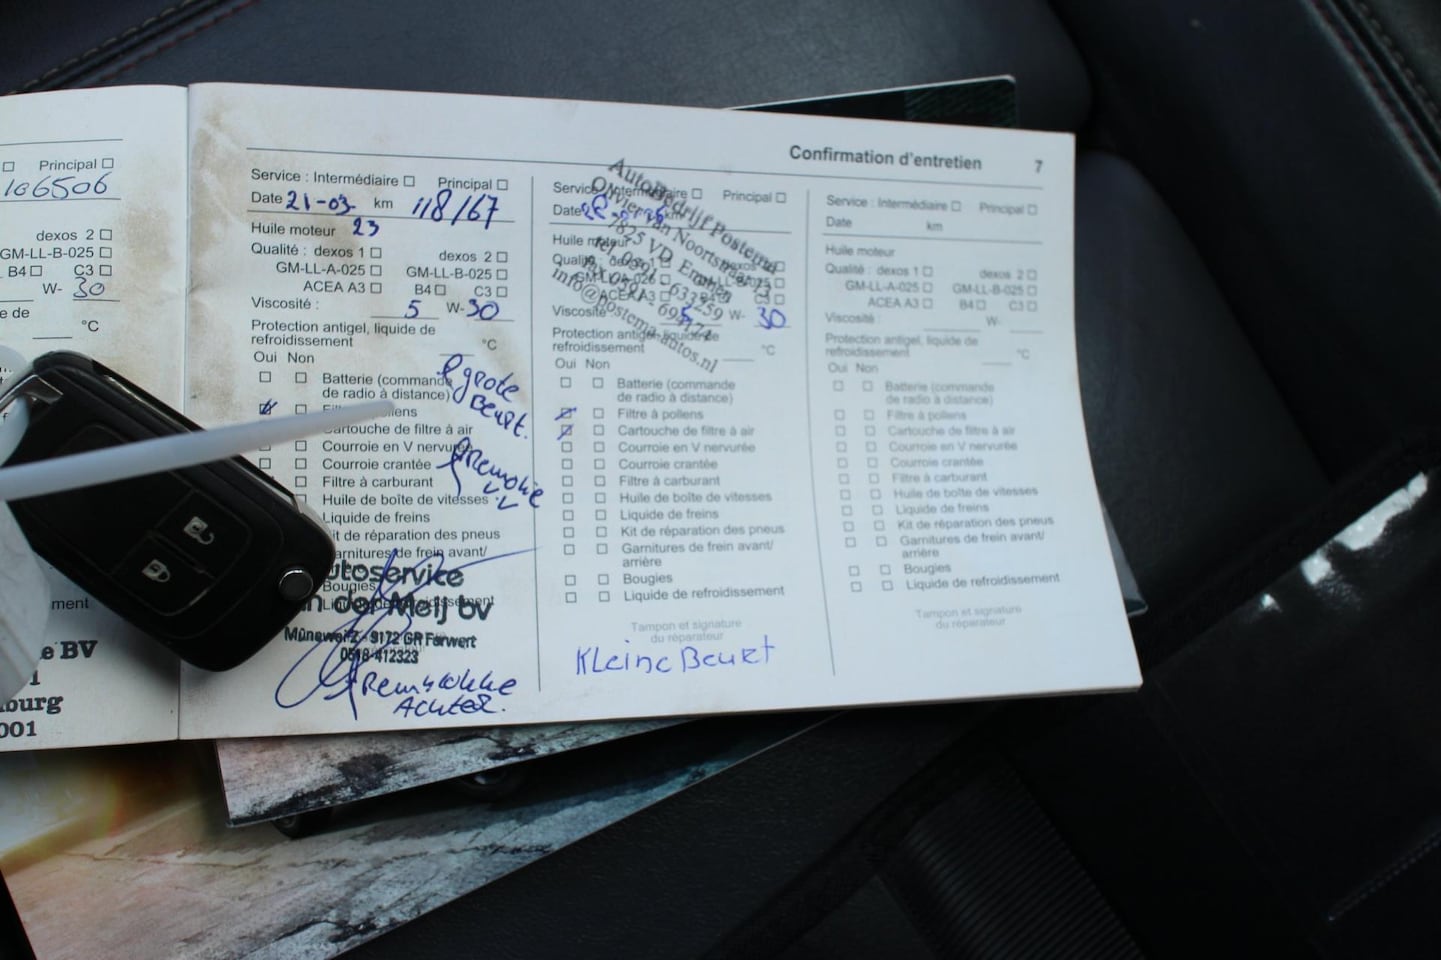 Principal
106506
dexos 2
GM-LL-B-025
B4 C3
W- 30
e de
°C
ment
e BV
1
burg
001
Confirmation d'entretien 7
Service : Intermédiaire Principal
Date 21-03 km 118167
Huile moteur 23
Qualité : dexos 1 dexos 2
GM-LL-A-025 GM-LL-B-025
ACEA A3 B4 C3
Viscosité : 5 W-30
Protection antigel, liquide de
refroidissement °C
Oui Non
Batterie (commande
de radio à distance)
grote
Beurt.
Cartouche de filtre à air
Courroie en V nervurée
Courroie crantée
Filtre à carburant
Huile de boîte de vitesses
Liquide de freins
Kit de réparation des pneus
Garnitures de frein avant/
Bougies
utoservice
n der Meij bv
9172 GR Ferwert
0518-412323
Remblokke
Achter.
Service : Intermédiaire Principal
Date
Huile moteur
Viscosité : 5 W- 30
Protection antigel, liquide de
refroidissement °C
Oui Non
Batterie (commande
de radio à distance)
Filtre à pollens
Cartouche de filtre à air
Courroie en V nervurée
Courroie crantée
Filtre à carburant
Huile de boîte de vitesses
Liquide de freins
Kit de réparation des pneus
Garnitures de frein avant/
arrière
Bougies
Liquide de refroidissement
Tampon et signature
du réparateur
Kleine Beurt
AutoBedrijf Postema
Olivier van Noortstraat
7825 VD Emmen
info@postema-autos.nl
Service : Intermédiaire Principal
Date km
Huile moteur
Qualité : dexos 1 dexos 2
GM-LL-A-025 GM-LL-B-025
ACEA A3 B4 C3
Viscosité : W-
Protection antigel, liquide de
refroidissement °C
Oui Non
Batterie (commande
de radio à distance)
Filtre à pollens
Cartouche de filtre à air
Courroie en V nervurée
Courroie crantée
Filtre à carburant
Huile de boîte de vitesses
Liquide de freins
Kit de réparation des pneus
Garnitures de frein avant/
arrière
Bougies
Liquide de refroidissement
Tampon et signature
du réparateur